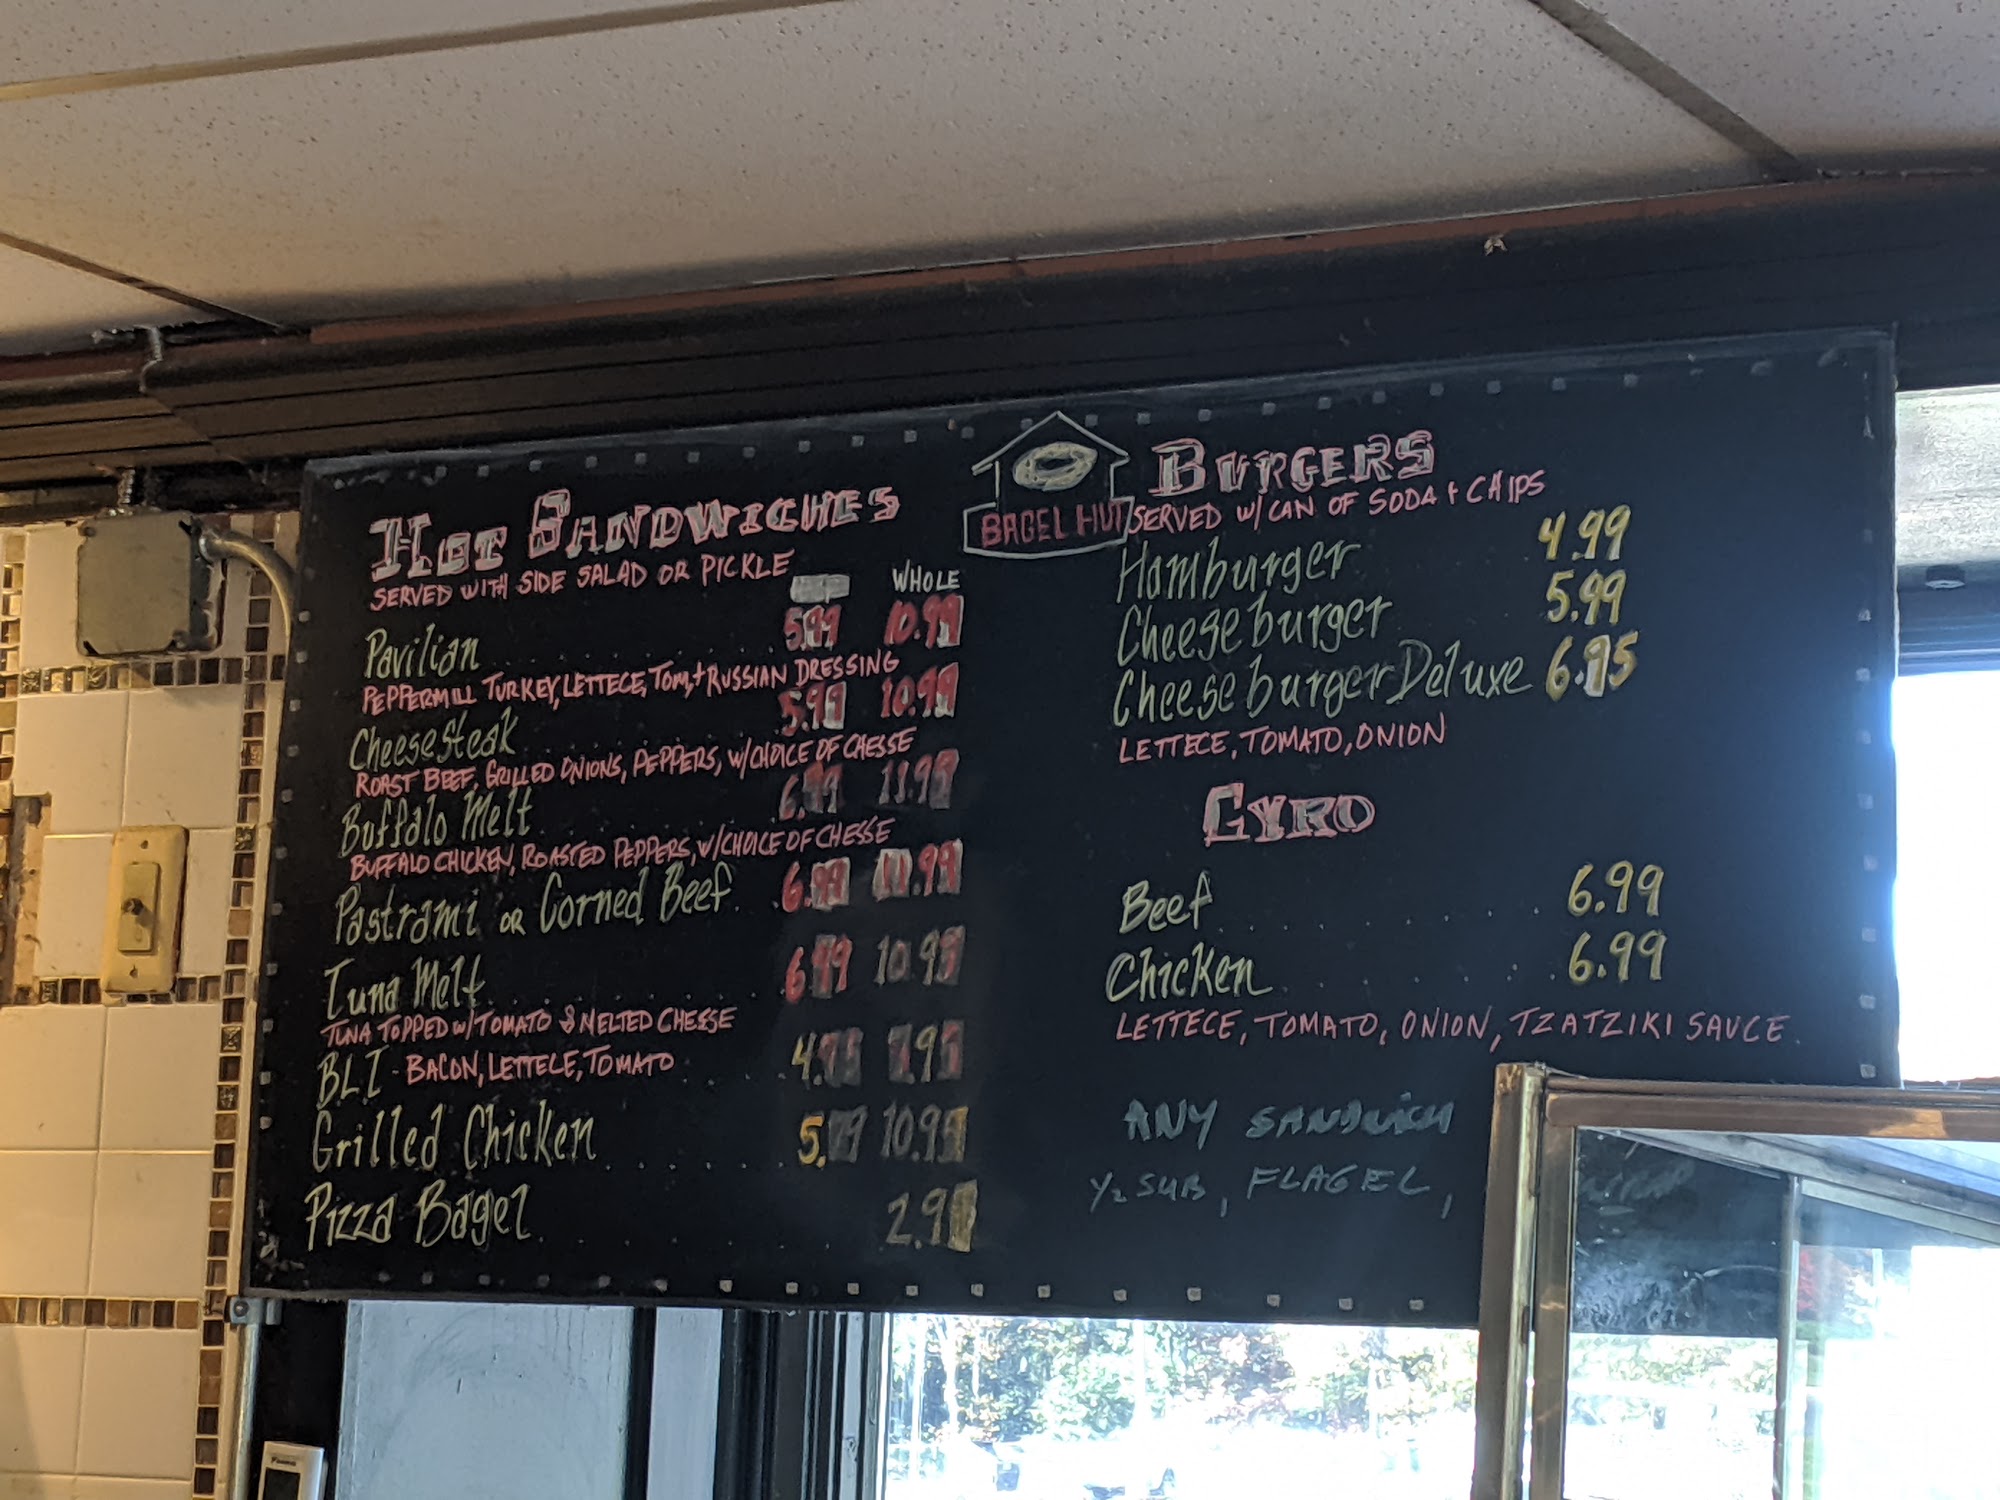 BAGEL HUT
HOT SANDWICHES
SERVED WITH SIDE SALAD OR PICKLE
WHOLE
Pavilian 5.99 10.99
PEPPERMILL TURKEY, LETTECE, TOM, + RUSSIAN DRESSING
Cheesesteak 5.99 10.99
ROAST BEEF, GRILLED ONIONS, PEPPERS, W/CHOICE OF CHESSE
Buffalo Melt 6.99 11.99
BUFFALO CHICKEN, ROASTED PEPPERS, W/CHOICE OF CHESSE
Pastrami OR Corned Beef 6.99 11.99
Tuna Melt 6.99 10.95
TUNA TOPPED W/TOMATO & MELTED CHESSE
BLT - BACON, LETTECE, TOMATO 4.
Grilled Chicken 5. 10.95
Pizza Bagel 2.9
BURGERS
SERVED W/CAN OF SODA + CHIPS
Hamburger 4.99
Cheeseburger 5.99
Cheeseburger Deluxe 6.95
LETTECE, TOMATO, ONION
GYRO
Beef 6.99
Chicken 6.99
LETTECE, TOMATO, ONION, TZATZIKI SAUCE.
ANY SANDWICH
1/2 SUB, FLAGEL,